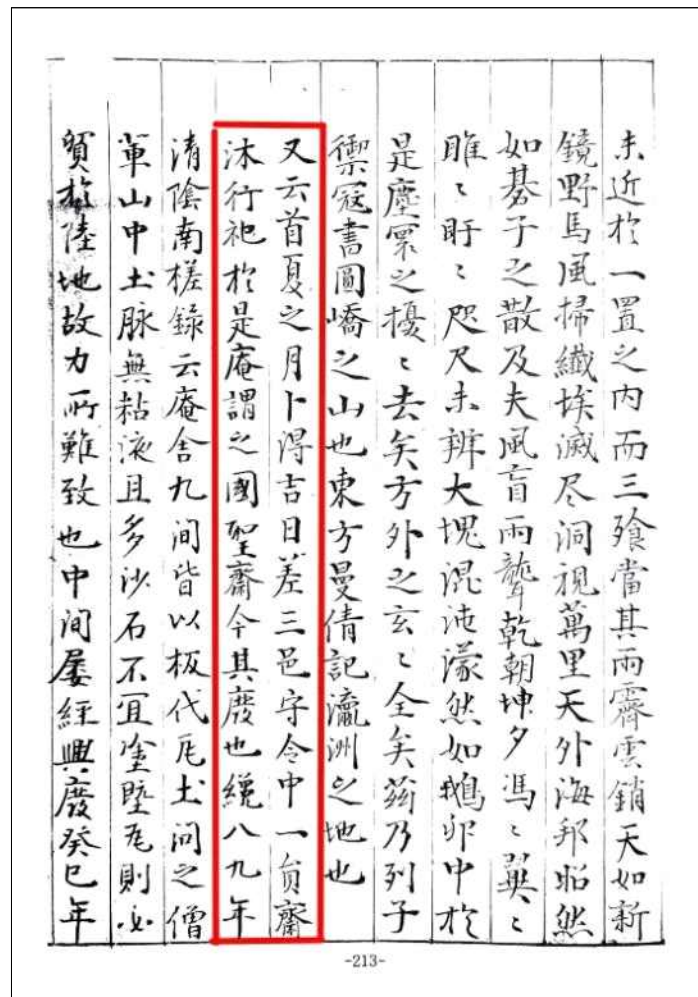 未近於一置之内而三飱當其雨霽雲銷天如新
鏡野馬風掃纖埃滅尽洞視萬里天外海邦昭然
如碁子之散及夫風盲雨聾乾朝坤夕馮〻翼〻
睢〻盱〻咫尺未辨大塊混沌濛然如鵝卵中於
是塵寰之擾〻去矣方外之玄〻全矣茲乃列子
禦寇書圓嶠之山也東方曼倩記瀛洲之地也
又云首夏之月卜淂吉日差三邑守令中一員齋
沐行祀於是庵謂之國聖齋今其廢也纔八九年
清陰南槎錄云庵舍九間皆以板代瓦土问之僧
軰山中土脉無粘液且多沙石不宜塗墍瓦則必
貿於陸地故力所難致也中间屡經興廢癸巳年
-213-